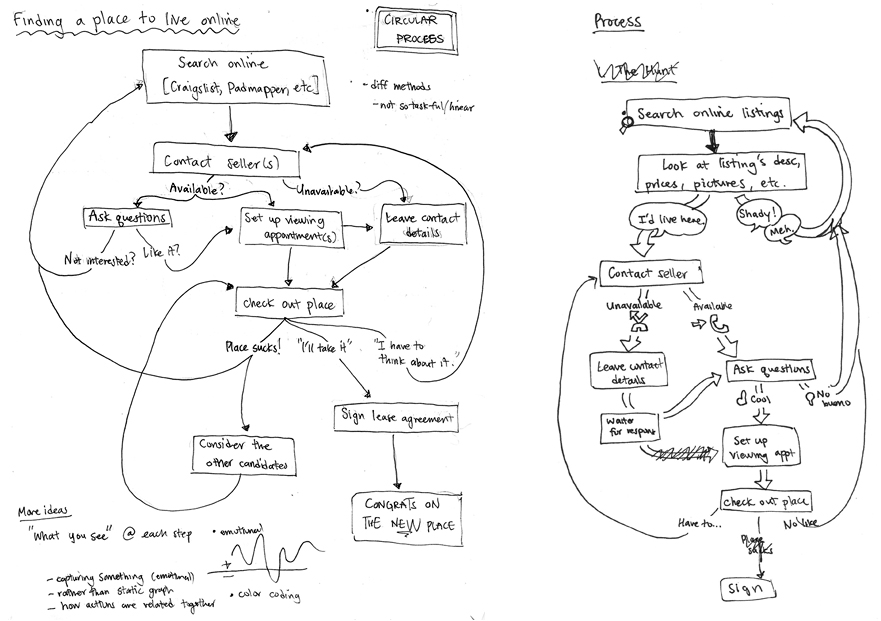 Finding a place to live online
CIRCULAR
PROCESS
- diff methods
- not so task-ful/linear
Search online
[Craigslist, Padmapper, etc]
Contact seller(s)
Available?
Unavailable?
Ask questions
Set up viewing
appointment(s)
Leave contact
details
Not interested?
Like it?
check out place
Place sucks!
"I'll take it"
"I have to
think about it."
Sign lease agreement
Consider the
other candidates
CONGRATS ON
THE NEW PLACE
More ideas
"What you see" @ each step
• emotional
+
-
- capturing something (emotional)
- rather than static graph
- how actions are related together
• color coding
Process
The Hunt
Search online listings
Look at listing's desc,
prices, pictures, etc.
I'd live here.
Shady!
Meh.
Contact seller
Unavailable
Available
Leave contact
details
Ask questions
Cool
No
bueno
for respons
Set up
viewing appt
check out place
Have to...
No like
Place
sucks
Sign